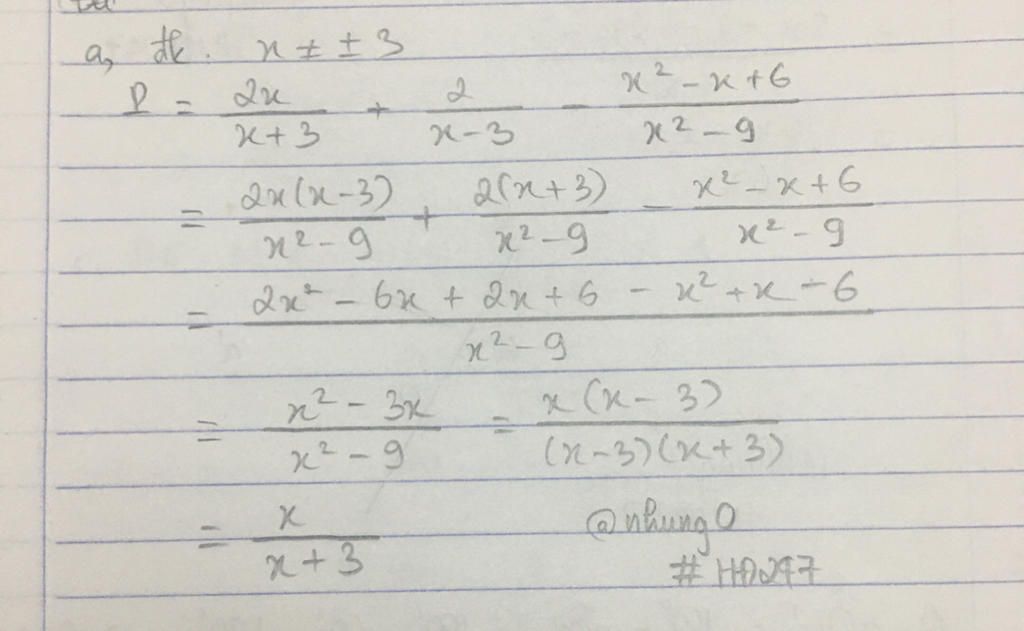 a, đk. x ≠ ± 3
P = \frac{2x}{x+3} + \frac{2}{x-3} - \frac{x^2-x+6}{x^2-9}
= \frac{2x(x-3)}{x^2-9} + \frac{2(x+3)}{x^2-9} - \frac{x^2-x+6}{x^2-9}
= \frac{2x^2-6x+2x+6-x^2+x-6}{x^2-9}
= \frac{x^2-3x}{x^2-9} = \frac{x(x-3)}{(x-3)(x+3)}
= \frac{x}{x+3} @nhung0
# HĐ247